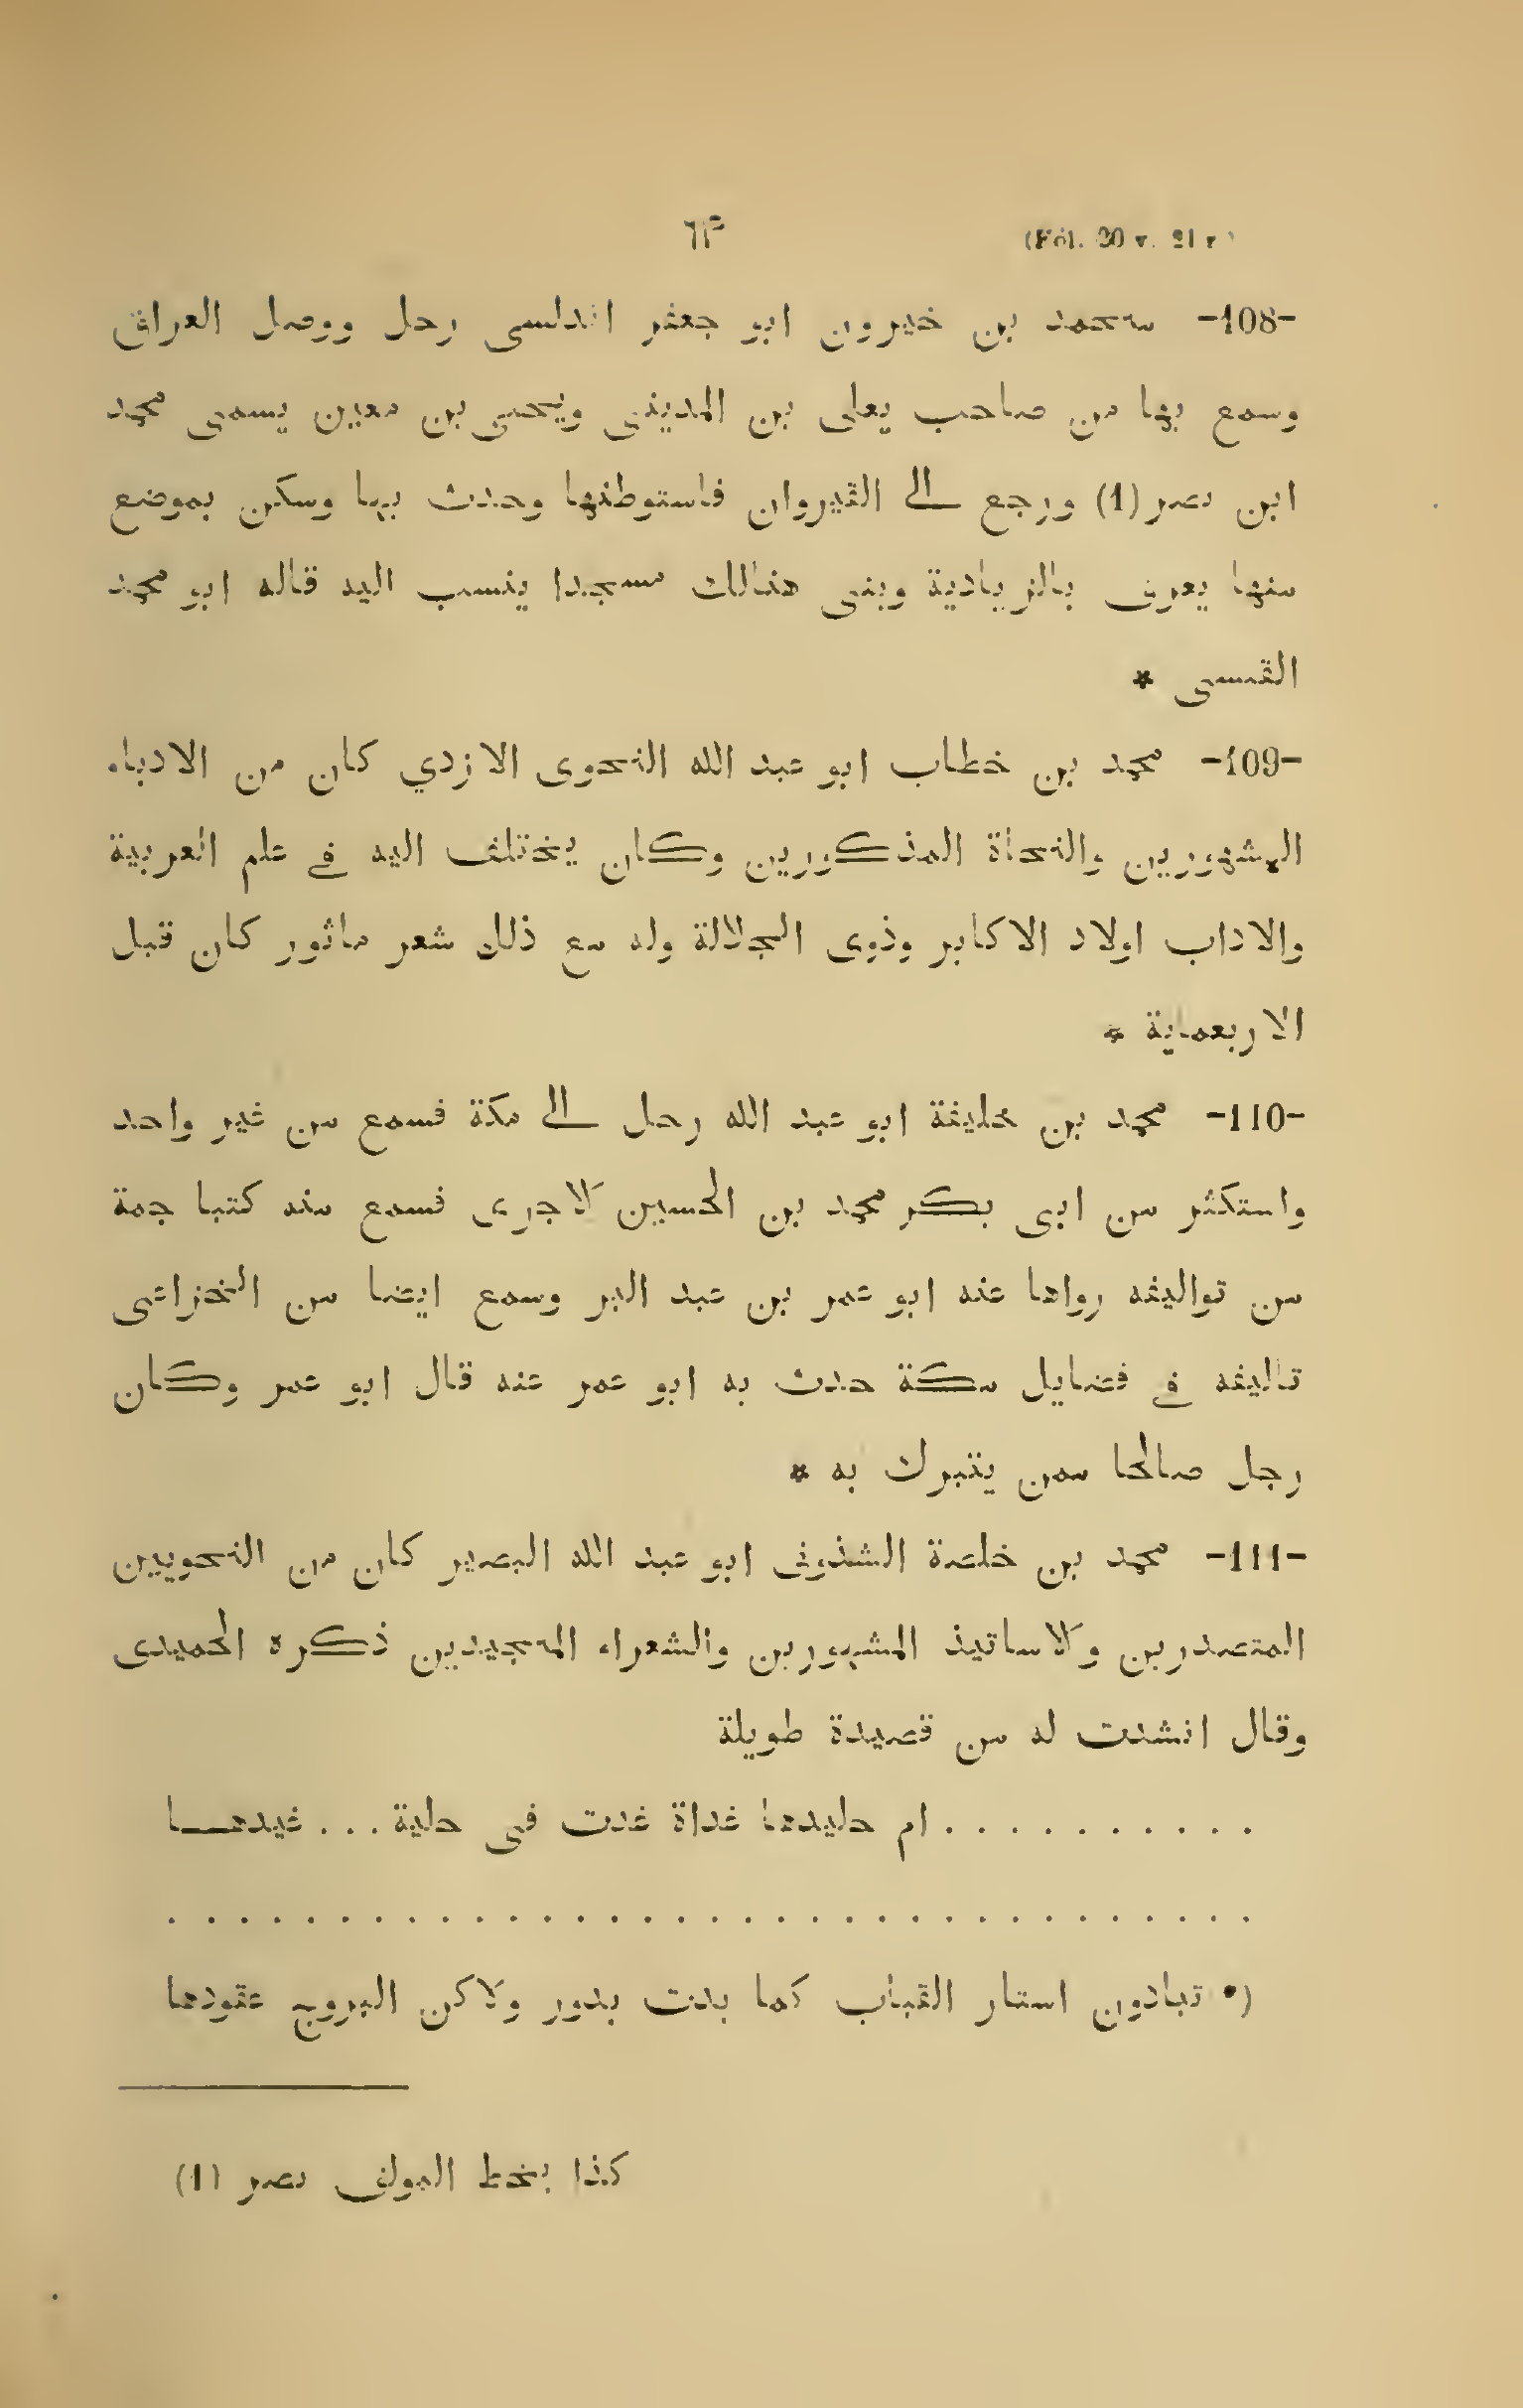 (Fol. 20 v. 21 r.) ٦٣
-108- محمد بن خيرون ابو جعفر اندلسى رحل ووصل العراق
وسمع بها من صاحب يعلى بن المدينى ويحيى بن معين يسمى محمد
ابن نصر (1) ورجع الى القيروان فاستوطنها وحدث بها وسكن بموضع
منها يعرف بالزيادية وبنى هنالك مسجدا ينسب اليه قاله ابو محمد
القيسى *
-109- محمد بن خطاب ابو عبد الله النحوى الازدي كان من الادباء
المشهورين والنحاة المذكورين وكان يختلف اليه فى علم العربية
والاداب اولاد الاكابر وذوى الجلالة وله مع ذلك شعر ماثور كان قبل
الاربعماية *
-110- محمد بن خليفة ابو عبد الله رحل الى مكة فسمع من غير واحد
واستكثر من ابى بكر محمد بن الحسين الاجرى فسمع منه كتبا جمة
من تواليفه رواها عنه ابو عمر بن عبد البر وسمع ايضا من الخزاعى
تاليفه فى فضايل مكة حدث به ابو عمر عنه قال ابو عمر وكان
رجل صالحا ممن يتبرك به *
-111- محمد بن خلصة الشذوف ابو عبد الله البصير كان من النحويين
المتصدرين والاساتيذ المشهورين والشعراء المجيدين ذكره الحميدى
وقال انشدت له من قصيدة طويلة
. . . . . . . . . . ام حليدها غداة غدت فى حلية . . . غيدها
. . . . . . . . . . . . . . . . . . . . . . . . . . . . . . . . .
تبادون استار القباب كما بدت بدور ولاكن البروج عقودها
(1) كذا بخط المولف نصر